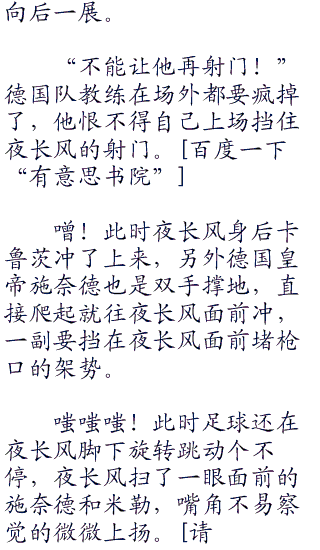 向后一展。
“不能让他再射门！”
德国队教练在场外都要疯掉
了，他恨不得自己上场挡住
夜长风的射门。[百度一下
“有意思书院”]
噌！此时夜长风身后卡
鲁茨冲了上来，另外德国皇
帝施奈德也是双手撑地，直
接爬起就往夜长风面前冲，
一副要挡在夜长风面前堵枪
口的架势。
嗤嗤嗤！此时足球还在
夜长风脚下旋转跳动个不
停，夜长风扫了一眼面前的
施奈德和米勒，嘴角不易察
觉的微微上扬。[请